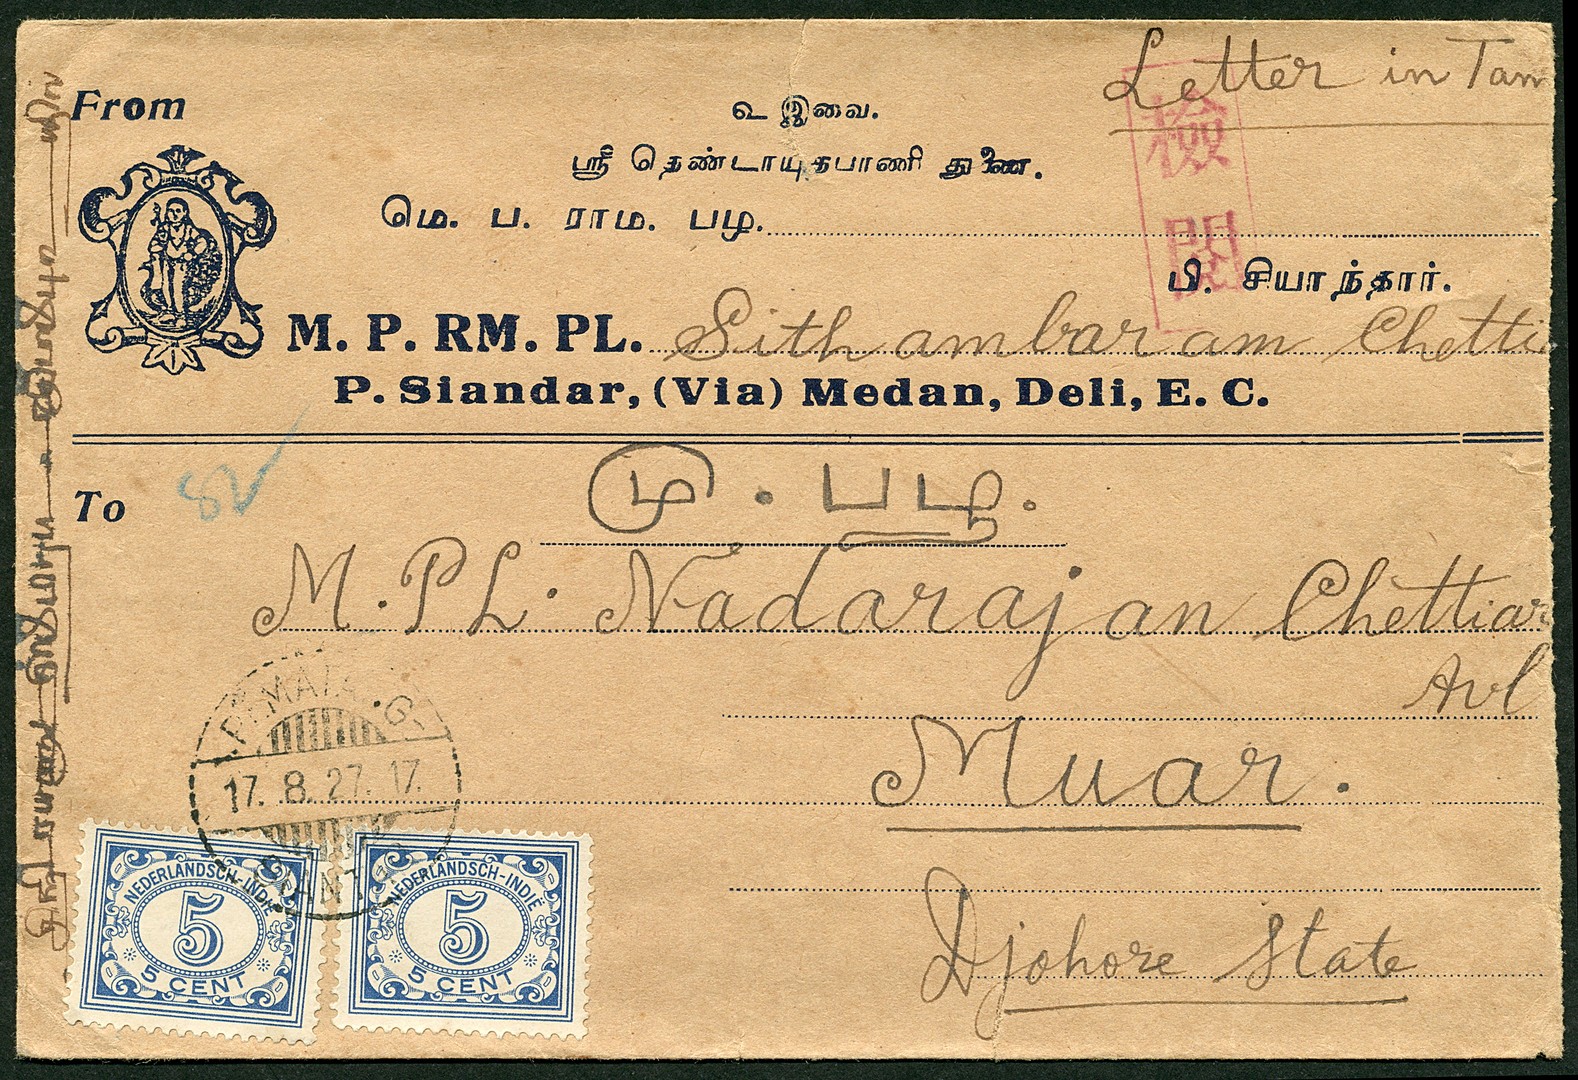 Letter in Tam
From
உ இவை.
ஸ்ரீ தெண்டாயுதபாணி துணை.
மெ. ப. ராம. பழ.
பி. சியாந்தார்.
檢閱
M. P. RM. PL. Sithambaram Chetti
P. Siandar, (Via) Medan, Deli, E. C.
82
To
மு. பழ.
M. PL. Nadarajan Chettiar
Avl
Muar.
Djohore State
17. 8. 27. 17.
NEDERLANDSCH-INDIË
5
5 CENT
NEDERLANDSCH-INDIË
5
5 CENT